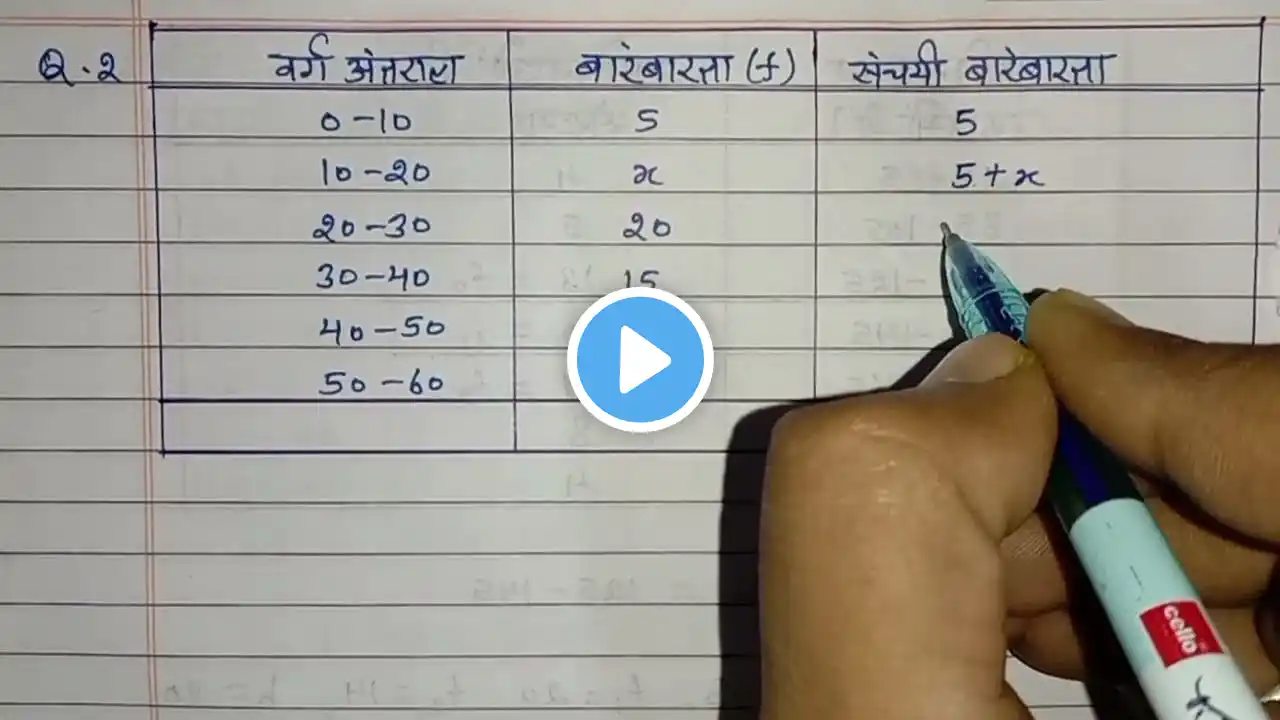 Q.2 वर्ग अंतराल बारंबारता (f) संचयी बारंबारता
0-10 5 5
10-20 x 5+x
20-30 20
30-40 15
40-50
50-60
cello